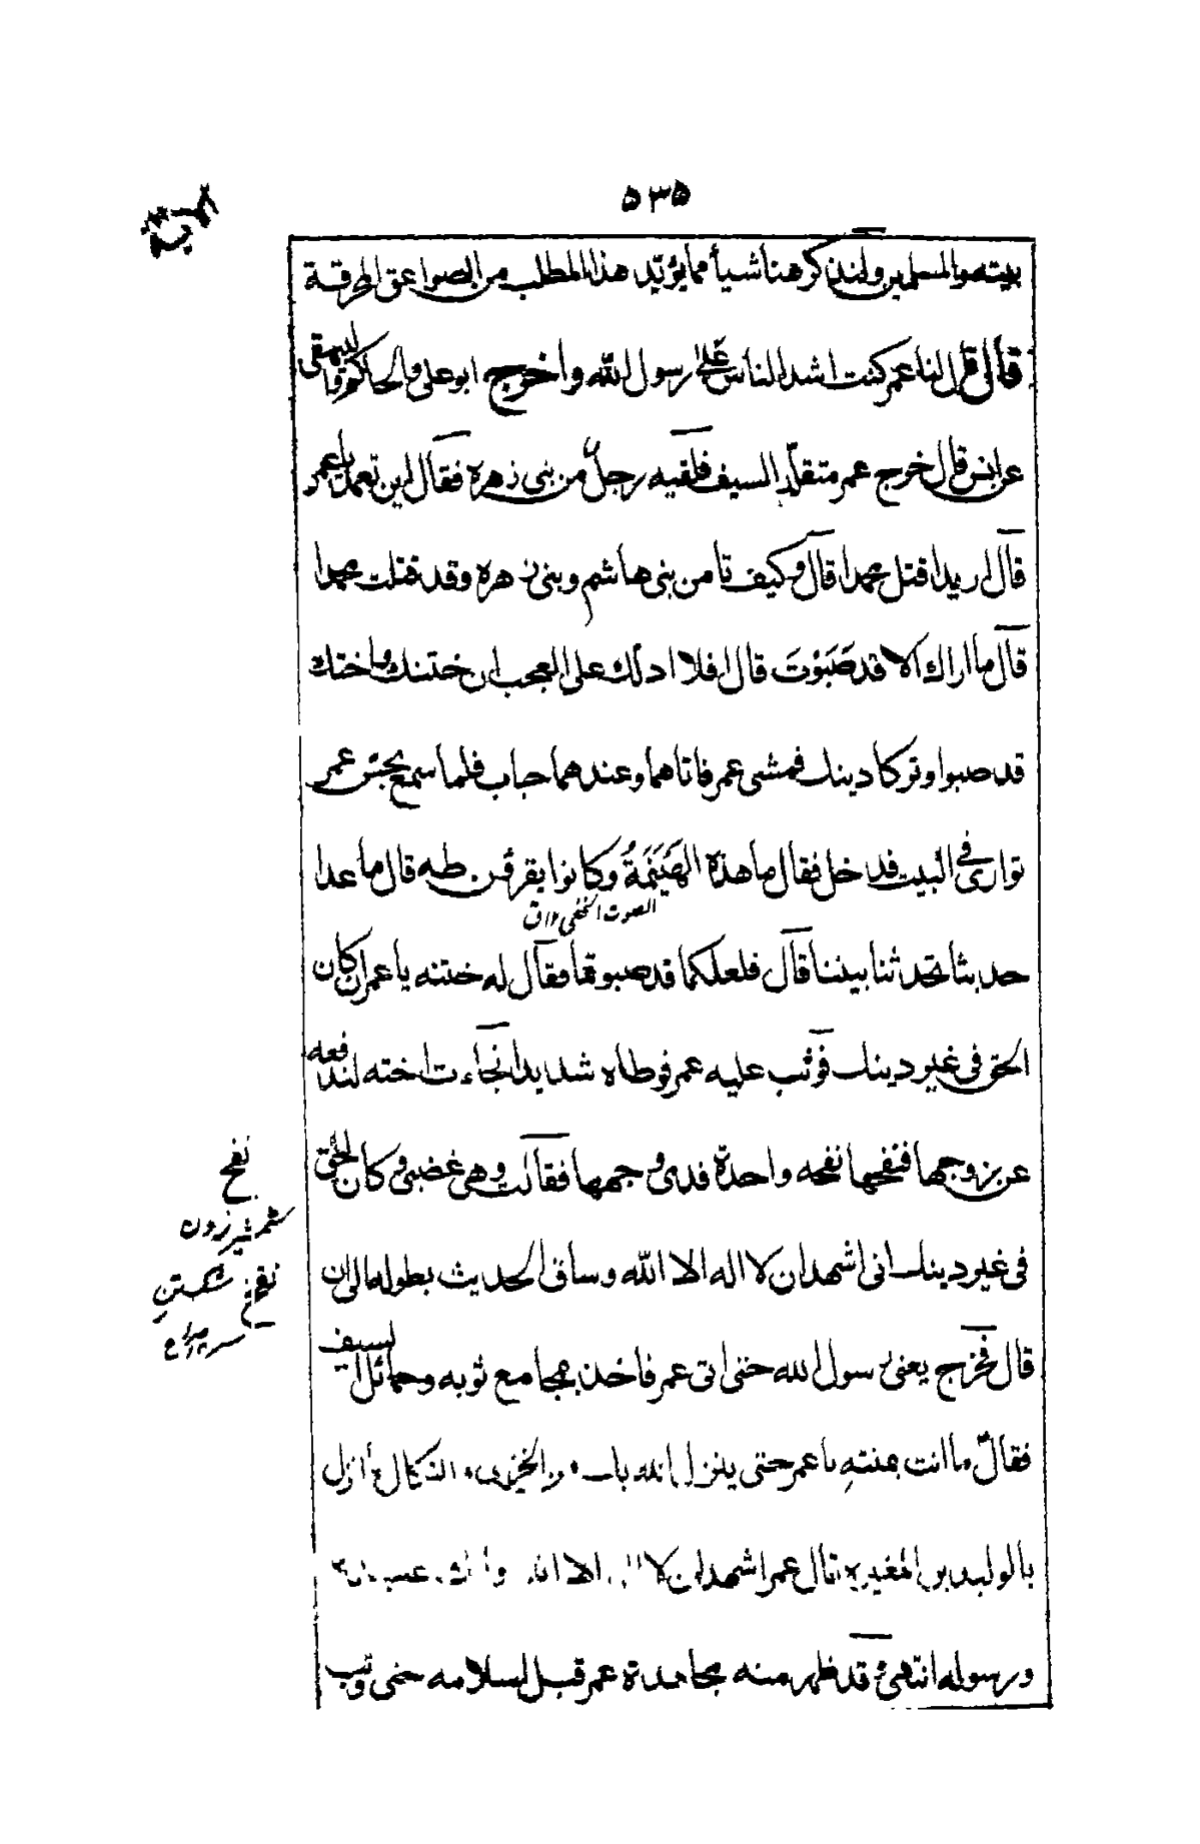 ۵۳۵
بيته والمسلمين ولنذكر هنا شيأ مما يؤيّد هذا المطلب من الصواعق المحرقة
قال قال لنا عمر كنت اشد الناس على رسول الله واخرج ابو على والحاكم والبيهقى
عن انس قال خرج عمر متقلّد السيف فلقيه رجل من بنى زهره فقال اين تعمد يا عمر
قال اريد اقتل محمدا قال وكيف تامن بنى هاشم وبنى زهره وقد قتلت محمدا
قال ما اراك الا قد صَبَوْتَ قال افلا ادلك على العجب ان ختنك واختك
قد صبوا وتركا دينك فمشى عمر فاتاهما وعندهما خباب فلما سمع بحس عمر
توارى فى البيت فدخل فقال ما هذه الهَيْنَمَةُ وكانوا يقرؤن طه قال ما عدا
الصوت الخفى ق
حديثا تحدثنا بيننا قال فلعلكما قد صبوتما فقال له ختنه يا عمر ان كان
الحق فى غير دينك فوثب عليه عمر فوطاه شديدا فجاءت اخته لتدفعه
عن زوجها فنفحها نفحه واحدة فدمى وجهها فقالت وهى غضبى وكان الحق
فى غير دينك انى اشهد ان لا اله الا الله وساق الحديث بطوله الى ان
قال فخرج يعنى رسول الله حتى اتى عمر فاخذ بمجامع ثوبه وحمائل السيف
فقال ما انت بمنتهٍ يا عمر حتى ينزل الله بك من الخزى والنكال ما انزل
بالوليد بن المغيره فقال عمر اشهد ان لا اله الا الله وانك عبد الله
ورسوله انتهى قد ظهر منه مجاهدة عمر قبل اسلامه حتى وثب
نفح
شمشير زدن
شكستن
صراح